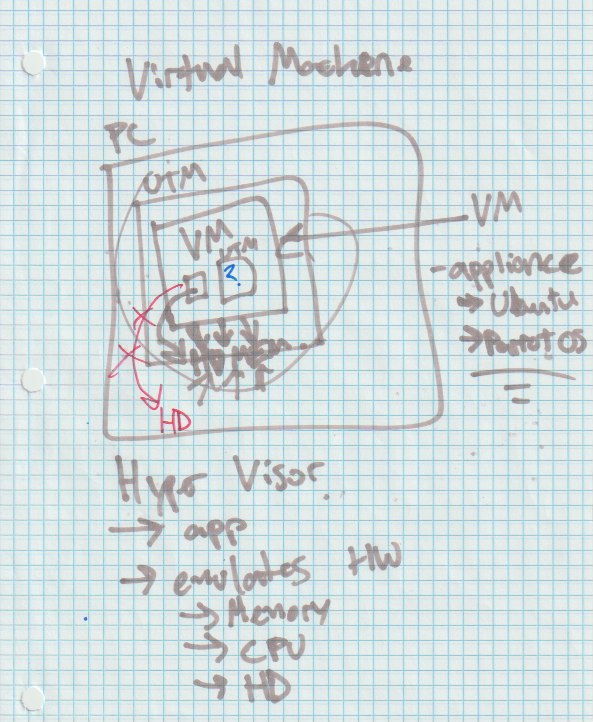 Virtual Machene
PC
UTM
VM
UTM
?
HD
VM
- appliance
→ Ubuntu
→ Parrot OS
HD
Hyper Visor.
→ app
→ emulates HW
→ Memory
→ CPU
→ HD